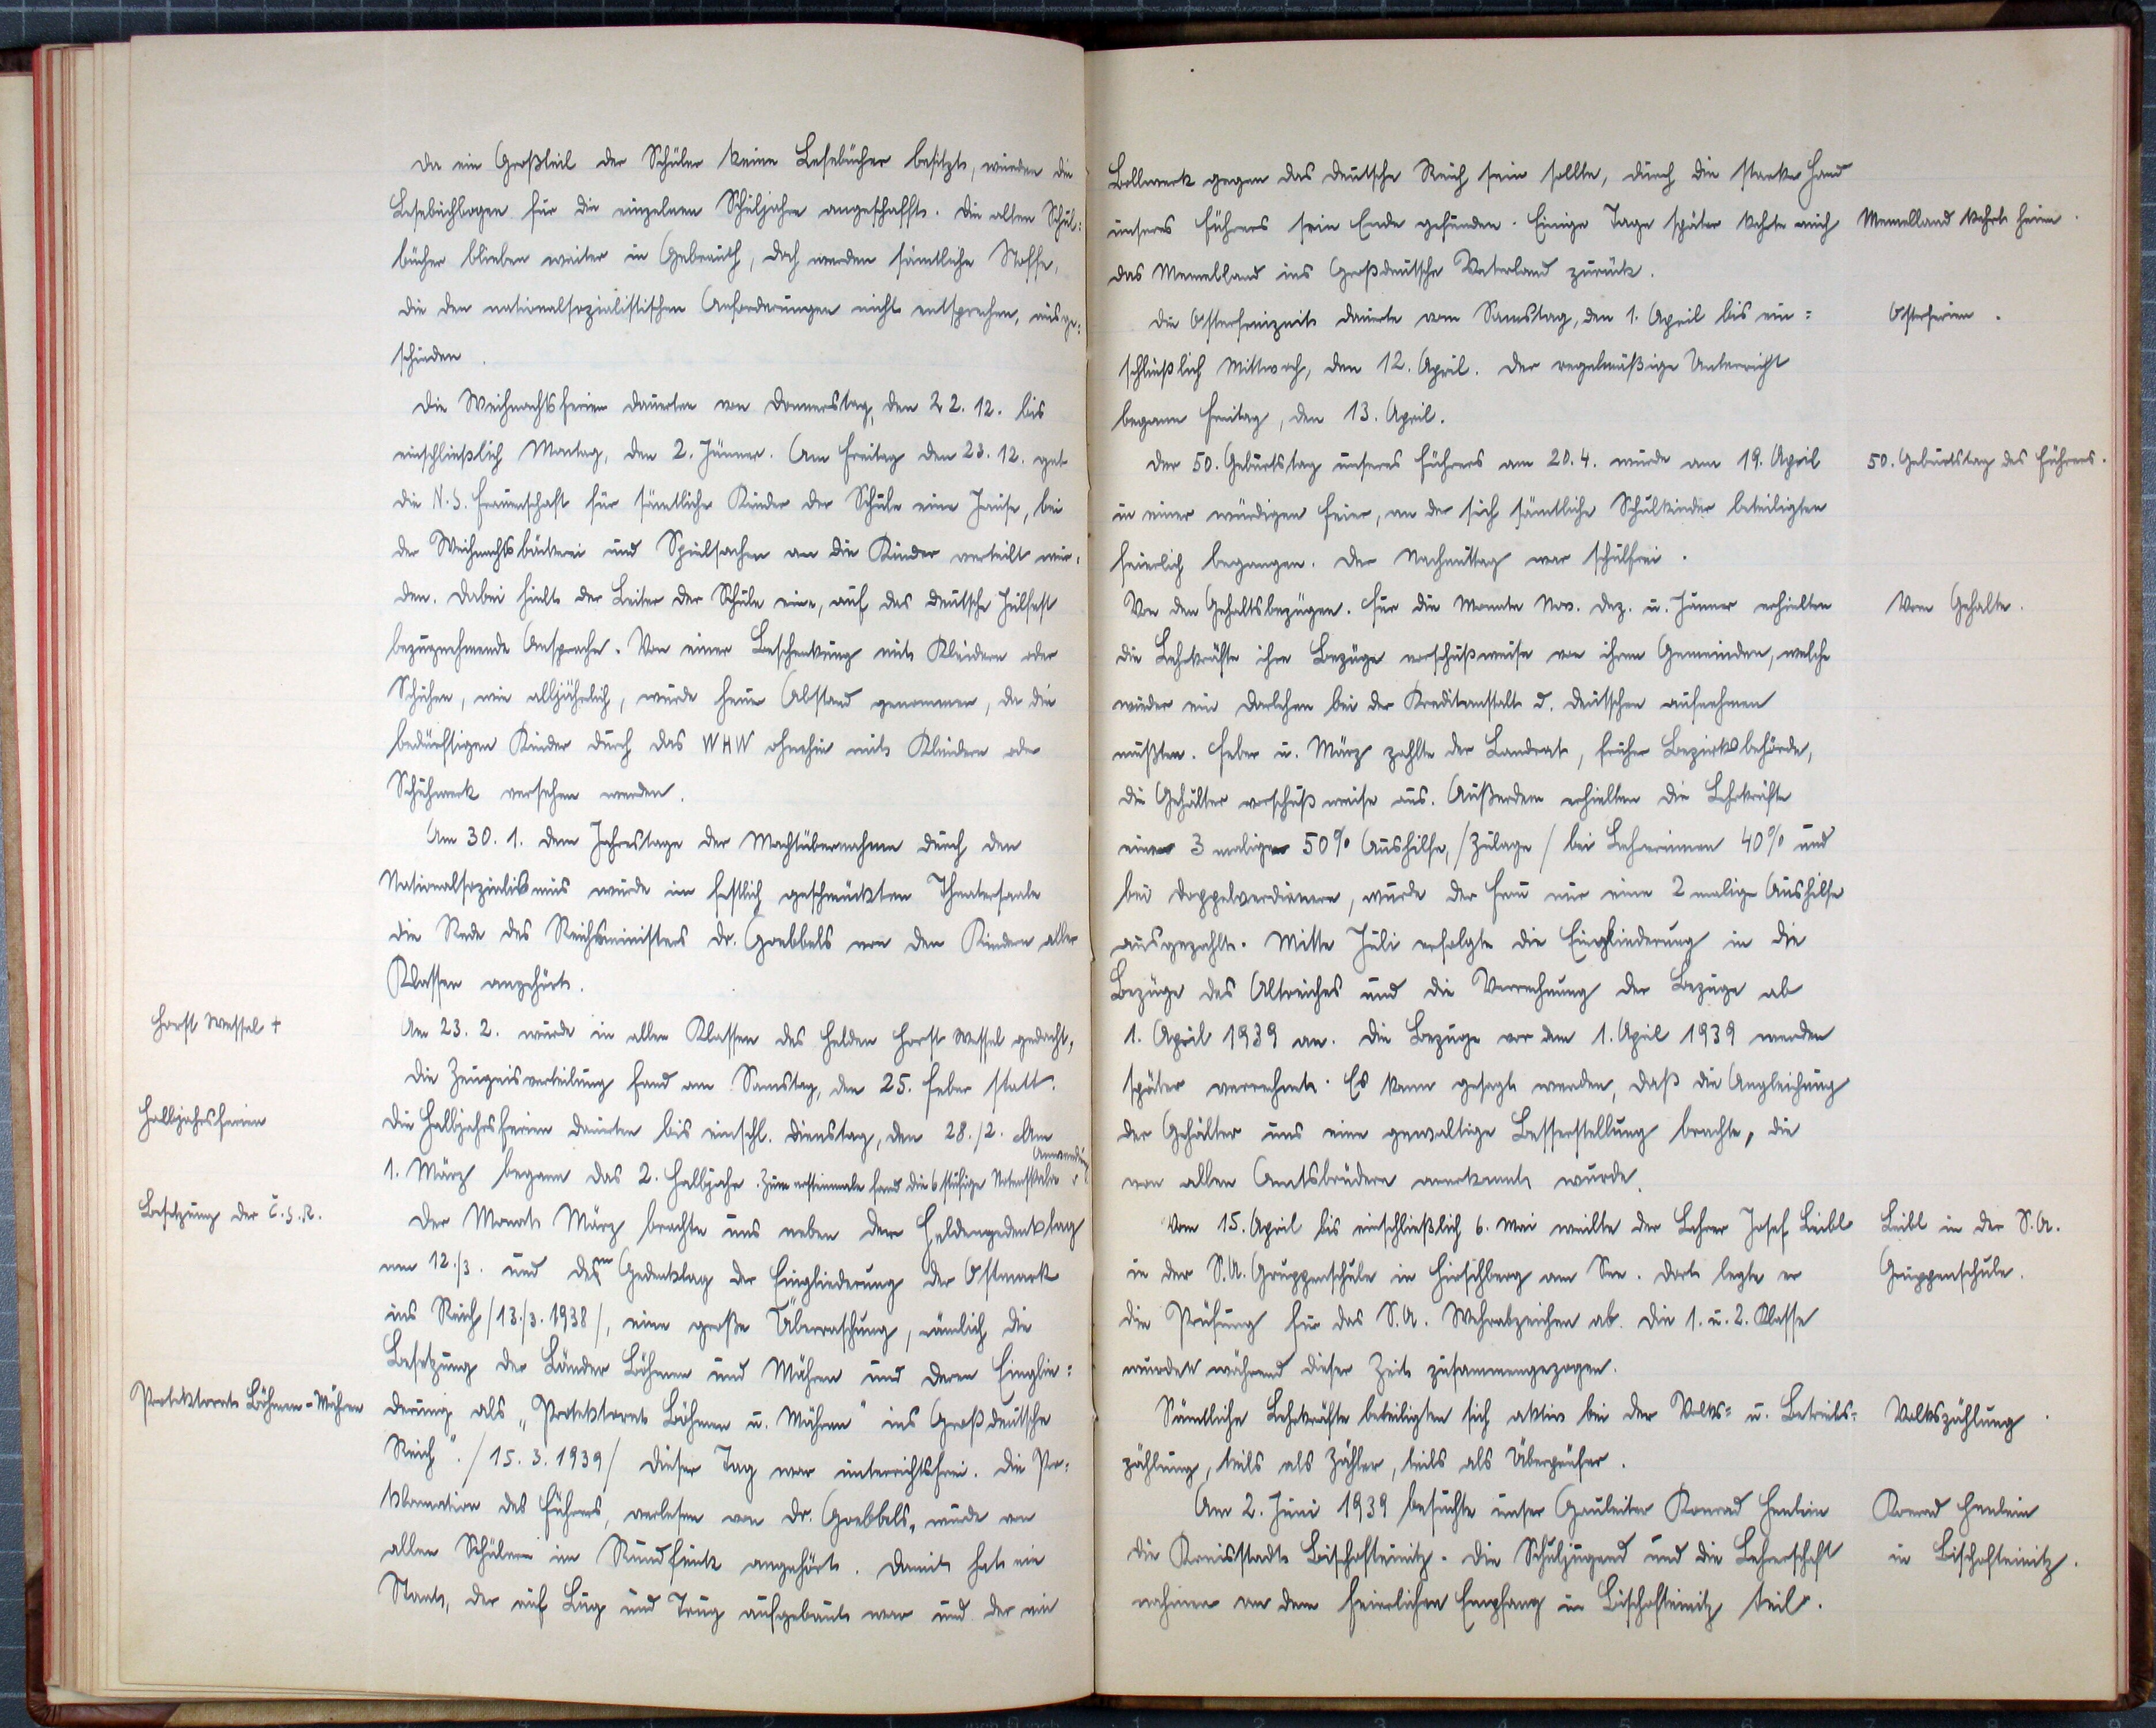 Da ein Großteil der Schüler keine Lesebücher besitzt, wurden die
Lesebuchbogen für die einzelnen Schuljahre angeschafft. Die alten Schul=
bücher blieben weiter in Gebrauch, doch wurden sämtliche Stoffe,
die den nationalsozialistischen Anforderungen nicht entsprechen, ausge=
schieden.
Die Weihnachtsferien dauerten von Donnerstag, den 22. 12. bis
einschließlich Montag, den 2. Jänner. Am Freitag den 23. 12. gab
die N.S. Frauenschaft für sämtliche Kinder der Schule eine Jause, bei
der Weihnachtsbäckerei und Spielsachen an die Kinder verteilt wur=
den. Dabei hielt der Leiter der Schule eine, auf das deutsche Julfest
bezugnehmende Ansprache. Von einer Beschenkung mit Kleidern oder
Schuhen, wie alljährlich, wurde heuer Abstand genommen, da die
bedürftigen Kinder durch das WHW ohnehin mit Kleidern oder
Schuhwerk versehen werden.
Am 30. 1. dem Jahrestage der Machtübernahme durch den
Nationalsozialismus wurde im festlich geschmückten Theatersaale
die Rede des Reichsministers Dr. Goebbels von den Kindern aller
Klassen angehört.
Horst Wessel +
Am 23. 2. wurde in allen Klassen des Helden Horst Wessel gedacht,
Die Zeugnisverteilung fand am Samstag, den 25. Feber statt.
Halbjahrsferien
Die Halbjahrsferien dauerten bis einschl. Dienstag, den 28./2. Am
1. März begann das 2. Halbjahr. Zum erstenmale fand die 6 stufige Notenskala Anwendung
Besetzung der Č.S.R.
Der Monat März brachte uns neben dem Heldengedenktag
am 12./3. und dem Gedenktag der Eingliederung der Ostmark
ins Reich /13./3.1938/, eine große Überraschung, nämlich die
Besetzung der Länder Böhmen und Mähren und deren Einglie=
Protektorat Böhmen=Mähren
derung als „Protektorat Böhmen u. Mähren" ins Großdeutsche
Reich". /15. 3. 1939/ Dieser Tag war unterrichtsfrei. Die Pro=
klamation des Führers, verlesen von Dr. Goebbels, wurde von
allen Schülern im Rundfunk angehört. Damit hat ein
Staat, der auf Lug und Trug aufgebaut war und der ein
Bollwerk gegen das deutsche Reich sein sollte, durch die starke Hand
unseres Führers sein Ende gefunden. Einige Tage später kehrte auch
Memelland kehrt heim.
das Memelland ins Großdeutsche Vaterland zurück.
Die Osterfreizeit dauerte vom Samstag, den 1. April bis ein=
Osterferien.
schließlich Mittwoch, den 12. April. Der regelmäßige Unterricht
begann Freitag, den 13. April.
Der 50. Geburtstag unseres Führers am 20. 4. wurde am 19. April
50. Geburtstag des Führers.
in einer würdigen Feier, an der sich sämtliche Schulkinder beteiligten
feierlich begangen. Der Nachmittag war schulfrei.
Von den Gehaltsbezügen. Für die Monate Nov. Dez. u. Jänner erhielten
Vom Gehalte.
die Lehrkräfte ihre Bezüge vorschußweise von ihren Gemeinden, welche
wieder ein Darlehen bei der Kreditanstalt d. Deutschen aufnehmen
mußten. Feber u. März zahlte der Landrat, früher Bezirksbehörde,
die Gehälter vorschußweise aus. Außerdem erhielten die Lehrkräfte
eine 3 malige 50% Aushilfe, /Zulage/ bei Lehrerinnen 40% und
bei Doppelverdienern, wurde der Frau nur eine 2 malige Aushilfe
ausgezahlt. Mitte Juli erfolgte die Eingliederung in die
Bezüge des Altreiches und die Verrechnung der Bezüge ab
1. April 1939 an. Die Bezüge vor dem 1. April 1939 werden
später verrechnet. Es kann gesagt werden, daß die Angleichung
der Gehälter uns eine gewaltige Besserstellung brachte, die
von allen Amtsbrüdern anerkannt wurde.
Vom 15. April bis einschließlich 6. Mai weilte der Lehrer Josef Leibl
Leibl in der S.A.
in der S.A. Gruppenschule in Hirschberg am See. Dort legte er
Gruppenschule.
die Prüfung für das S.A. Wehrabzeichen ab. Die 1. u. 2. Klasse
wurden während dieser Zeit zusammengezogen.
Sämtliche Lehrkräfte beteiligten sich aktiv bei der Volks= u. Betriebs=
Volkszählung.
zählung, teils als Zähler, teils als Überprüfer.
Am 2. Juni 1939 besuchte unser Gauleiter Konrad Henlein
Konrad Henlein
die Kreisstadt Bischofteinitz. Die Schuljugend und die Lehrerschaft
in Bischofteinitz.
nahmen an dem feierlichen Empfang in Bischofteinitz teil.